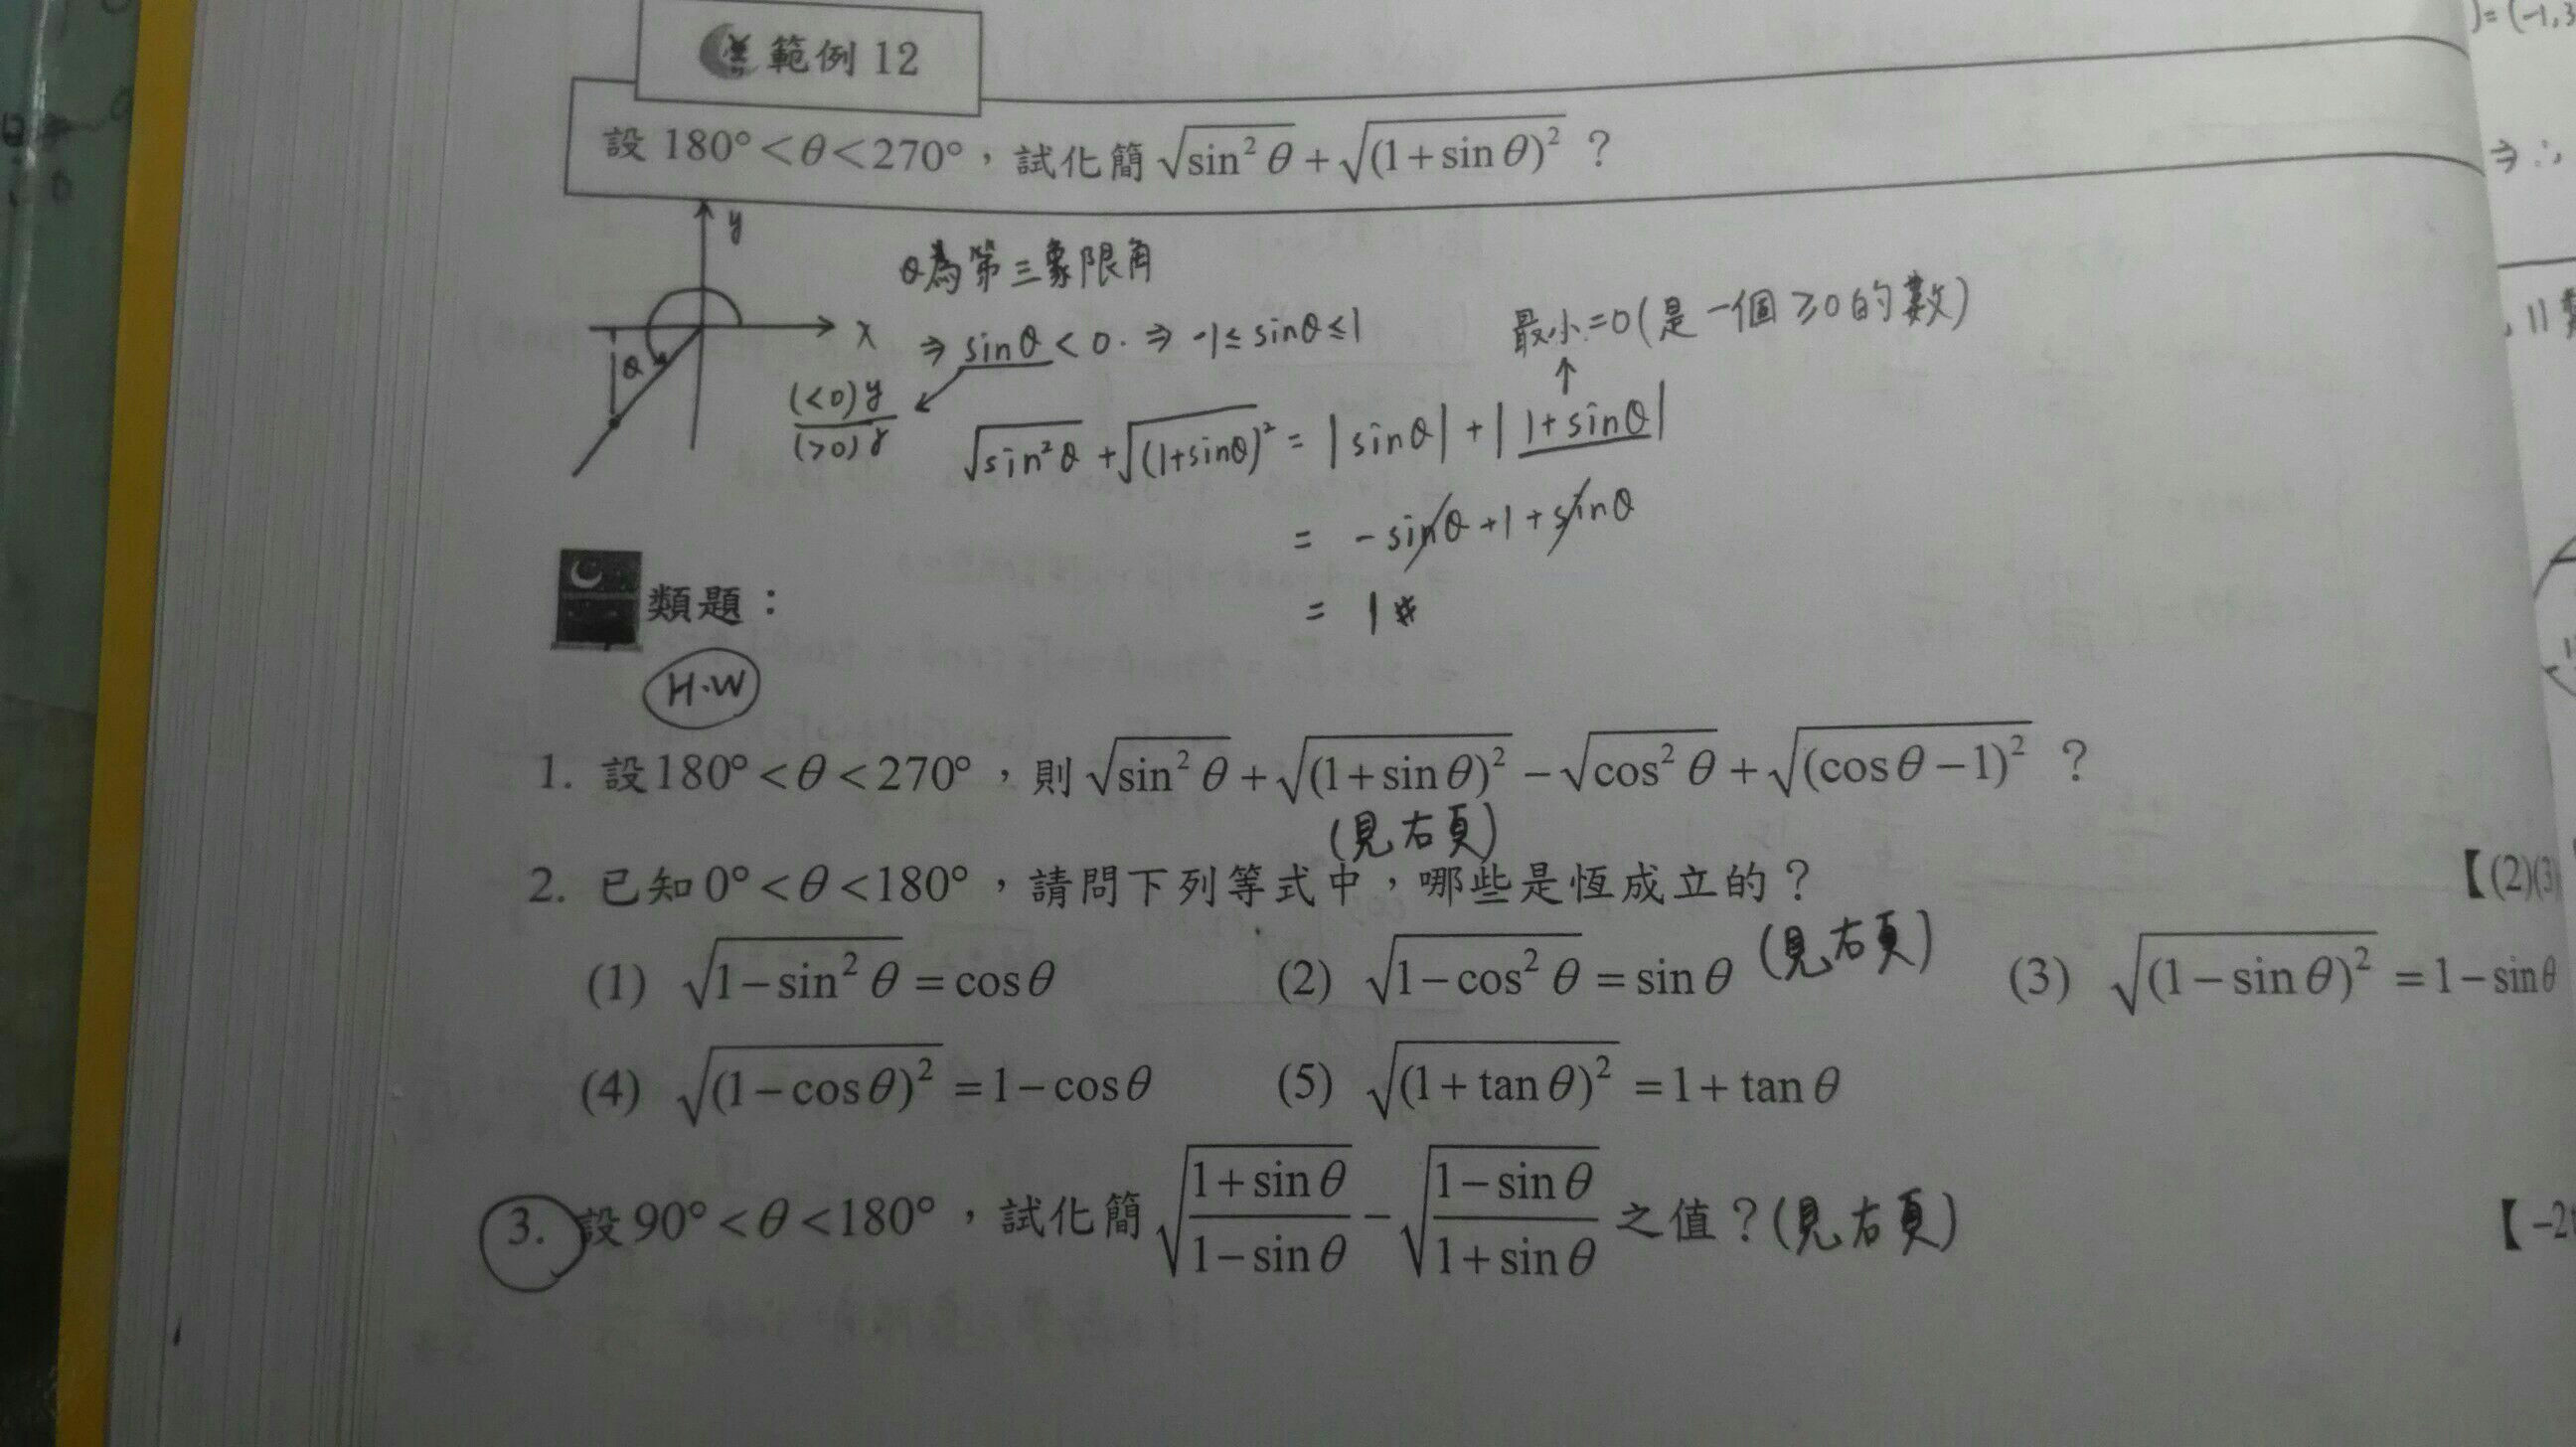 範例 12
)=(-1,3
設 180°<θ<270°，試化簡 √(sin²θ) + √((1+sinθ)²) ？
⇒ ∴
y
x
θ
θ為第三象限角
⇒ sinθ < 0. ⇒ -1 ≤ sinθ ≤ 1
最小=0(是一個≥0的數)
↑
(<0) y
(>0) r
√(sin²θ) + √((1+sinθ)²) = |sinθ| + |1+sinθ|
= -sinθ + 1 + sinθ
= 1 #
類題：
H.W
1. 設180°<θ<270°，則 √(sin²θ) + √((1+sinθ)²) − √(cos²θ) + √((cosθ−1)²) ？
(見右頁)
2. 已知 0°<θ<180°，請問下列等式中，哪些是恆成立的？
【(2)(3)
(1) √(1−sin²θ) = cosθ (2) √(1−cos²θ) = sinθ (見右頁) (3) √((1−sinθ)²) = 1−sinθ
(4) √((1−cosθ)²) = 1−cosθ (5) √((1+tanθ)²) = 1+tanθ
3. 設 90°<θ<180°，試化簡 √((1+sinθ)/(1−sinθ)) − √((1−sinθ)/(1+sinθ)) 之值？(見右頁)
【−2